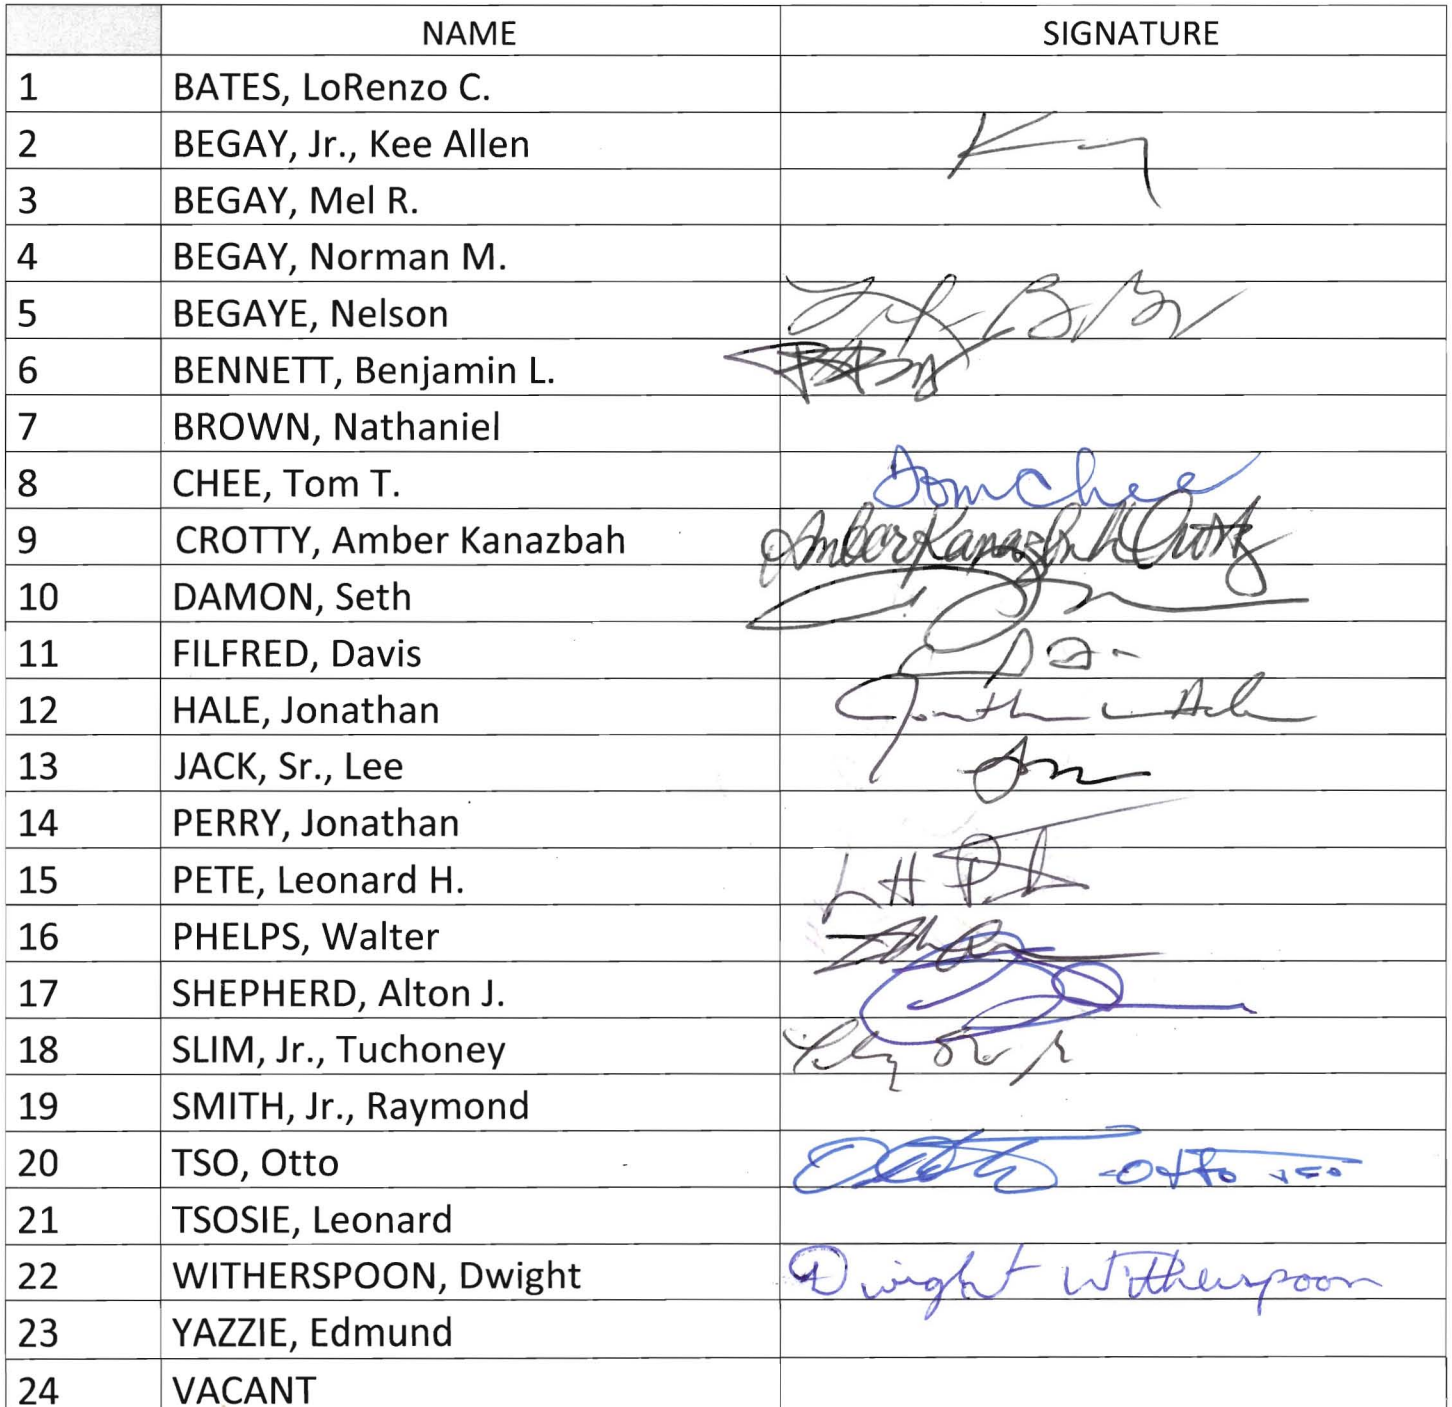 NAME SIGNATURE
1 BATES, LoRenzo C.
2 BEGAY, Jr., Kee Allen
3 BEGAY, Mel R.
4 BEGAY, Norman M.
5 BEGAYE, Nelson
6 BENNETT, Benjamin L.
7 BROWN, Nathaniel
8 CHEE, Tom T. Tom Chee
9 CROTTY, Amber Kanazbah Amber Kanazbah Crotty
10 DAMON, Seth
11 FILFRED, Davis
12 HALE, Jonathan Jonathan Hale
13 JACK, Sr., Lee
14 PERRY, Jonathan
15 PETE, Leonard H.
16 PHELPS, Walter
17 SHEPHERD, Alton J.
18 SLIM, Jr., Tuchoney
19 SMITH, Jr., Raymond
20 TSO, Otto Otto Tso
21 TSOSIE, Leonard
22 WITHERSPOON, Dwight Dwight Witherspoon
23 YAZZIE, Edmund
24 VACANT